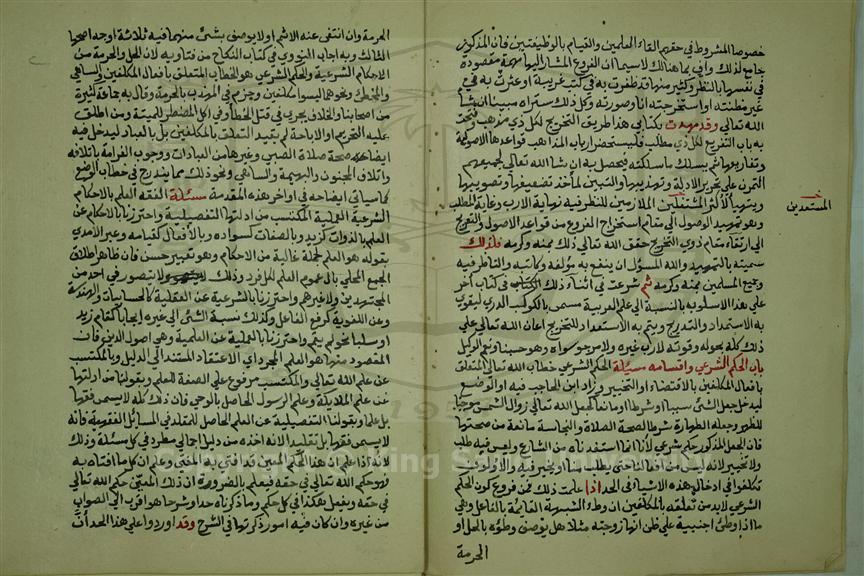 خصوصا المشروط في حقهم القاء العلمين والقيام بالوظيفتين فان المذكور
جامع لذلك واف بما هنالك لا سيما ان الفروع المشار اليها مهمة مقصودة
في نفسها بالنظر وكثير منها قد ظفرت به في كتب غريبة او عثرت به في
غير مظنته او استخرجته انا وصورته وكل ذلك ستراه مبينا ان شا
الله تعالى وقد مهدت بكتابي هذا طريق التخريج لكل ذي مذهب وفتحت
به باب التفريع لكل ذي مطلب فليستحضر ارباب المذاهب قواعدها الاصولية
وتفاريعها ثم يسلك ما سلكته فيحصل به ان شا الله تعالى لجميعهم
التمرن على تحرير الادلة وتهذيبها والتبين لمأخذ تضعيفها وتصويبها
ويتهيأ لأكثر المشتغلين الملازمين للنظر فيه نهاية الارب وغاية المطلب
المستعدين
وهو تمهيد الوصول الى مقام استخراج الفروع من قواعد الاصول والتعريج
الى ارتقاء مقام ذوي التخريج حقق الله تعالى ذلك بمنه وكرمه فلذلك
سميته بالتمهيد والله المسؤل ان ينفع به مؤلفه وكاتبه والناظر فيه
وجميع المسلمين بمنه وكرمه ثم شرعت في اثناء ذلك في كتاب آخر
على هذا الاسلوب بالنسبة الى علم العربية مسمى بالكوكب الدري ليقوى
به الاستمداد والتدريج ويتم به الاستعداد للتخريج اعان الله تعالى على
ذلك كله بحوله وقوته لا رب غيره ولا مرجو سواه وهو حسبنا ونعم الوكيل
باب الحكم الشرعي واقسامه مسئلة الحكم الشرعي خطاب الله تعالى المتعلق
بافعال المكلفين بالاقتضاء او التخيير وزاد ابن الحاجب فيه او الوضع
ليدخل جعل الشئ سببا او شرطا او مانعا كجعل الله تعالى زوال الشمس موجبا
للظهر وجعله الطهارة شرطا لصحة الصلاة والنجاسة مانعة من صحتها
فان الجعل المذكور حكم شرعي لأنا انما استفدناه من الشارع وليس فيه طلب
ولا تخيير لانه ليس من افعالنا حتى يطلب منا او نخير فيه والاولون
تكلفوا في ادخال هذه الاشياء في الحد اذا علمت ذلك فمن فروع كون الحكم
الشرعي لا بد من تعلقه بالمكلفين ان وطء الشبهة القائمة بالفاعل وهي
ما اذا وطئ اجنبية على ظن انها زوجته مثلا هل يوصف وطؤه بالحل او
الحرمة
الحرمة وان انتفى عنه الاثم او لا يوصف بشئ منهما فيه ثلاثة اوجه اصحها
الثالث وبه اجاب النووي في كتاب النكاح من فتاويه لان الحل والحرمة من
الاحكام الشرعية والحكم الشرعي هو الخطاب المتعلق بافعال المكلفين والساهي
والمخطئ ونحوهما ليسوا مكلفين وجزم في المهذب بالحرمة وقال به جماعة كثيرة
من اصحابنا والخلاف يجري في قتل الخطأ وفي اكل المضطر للميتة ومن اطلق
عليه التحريم او الاباحة لم يقيد التعلق بالمكلفين بل بالعباد ليدخل فيه
ايضا صحة صلاة الصبي وغيرها من العبادات ووجوب الغرامة باتلافه
واتلاف المجنون والبهيمة والساهي ونحو ذلك مما يندرج في خطاب الوضع
كما سياتي ايضاحه في اواخر هذه المقدمة مسئلة الفقه العلم بالاحكام
الشرعية العملية المكتسب من ادلتها التفصيلية واحترزنا بالاحكام عن
العلم بالذوات كزيد وبالصفات كسواده وبالافعال كقيامه وعبر الآمدي
بقوله هو العلم بجملة غالبة من الاحكام وهو تعبير حسن فان ظاهر اطلاق
الجمع المحلى بال عموم العلم لكل فرد وذلك لا يتصور في احد من
المجتهدين ولا غيرهم واحترزنا بالشرعية عن العقلية كالحسابيات والهندسة
وعن اللغوية كرفع الفاعل وكذلك نسبة الشئ الى غيره ايجابا كقام زيد
او سلبا نحو لم يقم واحترزنا بالعملية عن العلمية وهي اصول الدين فان
المقصود منها هو العلم المجرد اي الاعتقاد المستند الى الدليل وبالمكتسب
عن علم الله تعالى والمكتسب مرفوع على الصفة للعلم وبقولنا من ادلتها
عن علم الملايكة وعلم الرسول الحاصل بالوحي فان ذلك كله لا يسمى فقها
بل علما وبقولنا التفصيلية عن العلم الحاصل للمقلد في المسائل الفقهية فانه
لا يسمى فقها بل تقليد لانه اخذه من دليل اجمالي مطرد في كل مسئلة وذلك
لانه اذا علم ان هذا الحكم المعين قد افتى به المفتي وعلم ان كل ما افتاه به
فهو حكم الله تعالى في حقه فيعلم بالضرورة ان ذلك المعين حكم الله تعالى
في حقه ويفعل هكذا في كل حكم وما ذكرناه حدا وشرحا هو اقرب الى الصواب
من غيره وان كان فيه امور ذكرتها في الشرح وقد اوردوا على هذا الحد ان